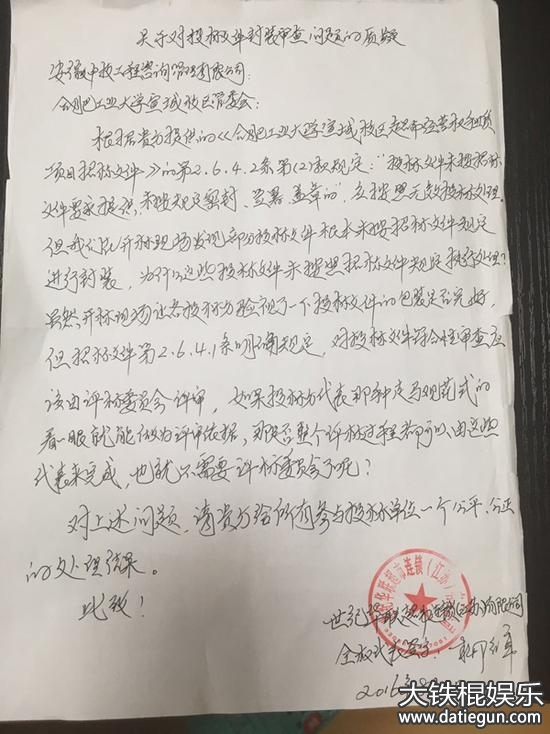 关于对投标文件封装审查问题的质疑
安徽中技工程咨询管理有限公司:
合肥工业大学宣城校区管委会:
根据贵方提供的《合肥工业大学宣城校区超市经营权租赁
项目招标文件》的第2.6.4.2条第(2)款规定:"投标文件未按招标
文件要求提供,未按规定密封、签署、盖章的",应按照无效投标处理。
但我代表开标现场发现部分投标文件根本未按招标文件规定
进行封装,为什么这些投标文件未按照招标文件规定执行处理?
虽然开标现场让各投标方验视了一个投标文件的包装是否完好,
但招标文件第2.6.4.1条明确规定,对投标文件符合性审查应
该由评标委员会评审,如果投标方代表那种走马观花式的
看一眼就能做为评审依据,那是否整个评标过程都可以由这些
代表来完成,也就不需要评标委员会了呢?
对上述问题,请贵方给所有参与投标单位一个公平、公正
的处理结果。
此致!
世纪华联超市连锁(江苏)有限公司
全权代表签字:
2016年
世纪华联超市连锁(江苏)有限公司
大铁棍娱乐
www.datiegun.com